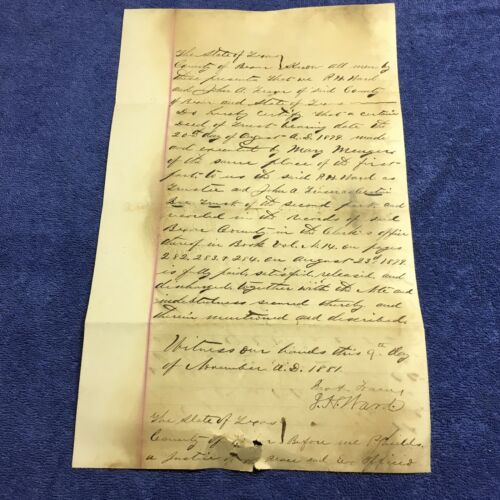 The State of Texas
County of Bexar } Know all men by
these presents that we P.H. Ward
and John A. Fraser of said County
of Bexar and State of Texas
Do hereby certify that a certain
Deed of Trust bearing date the
20th day of August A.D. 1879 made
and executed by Mary Mengers
of the same place of the first
part to us the said P.H. Ward as
Trustee and John A. Fraser
of the second part and
recorded in the records of said
Bexar County in the Clerk's office
thereof in Book Vol. No 14. on pages
282, 283 & 284. on August 23d 1879
is fully paid, satisfied, released, and
discharged, together with the Note and
indebtedness secured thereby and
therein mentioned and described.
Witness our hands this 9th day
of November A.D. 1881.
Ward
The State of Texas
County of Bexar } Before me
a Justice of Peace and Ex Officio